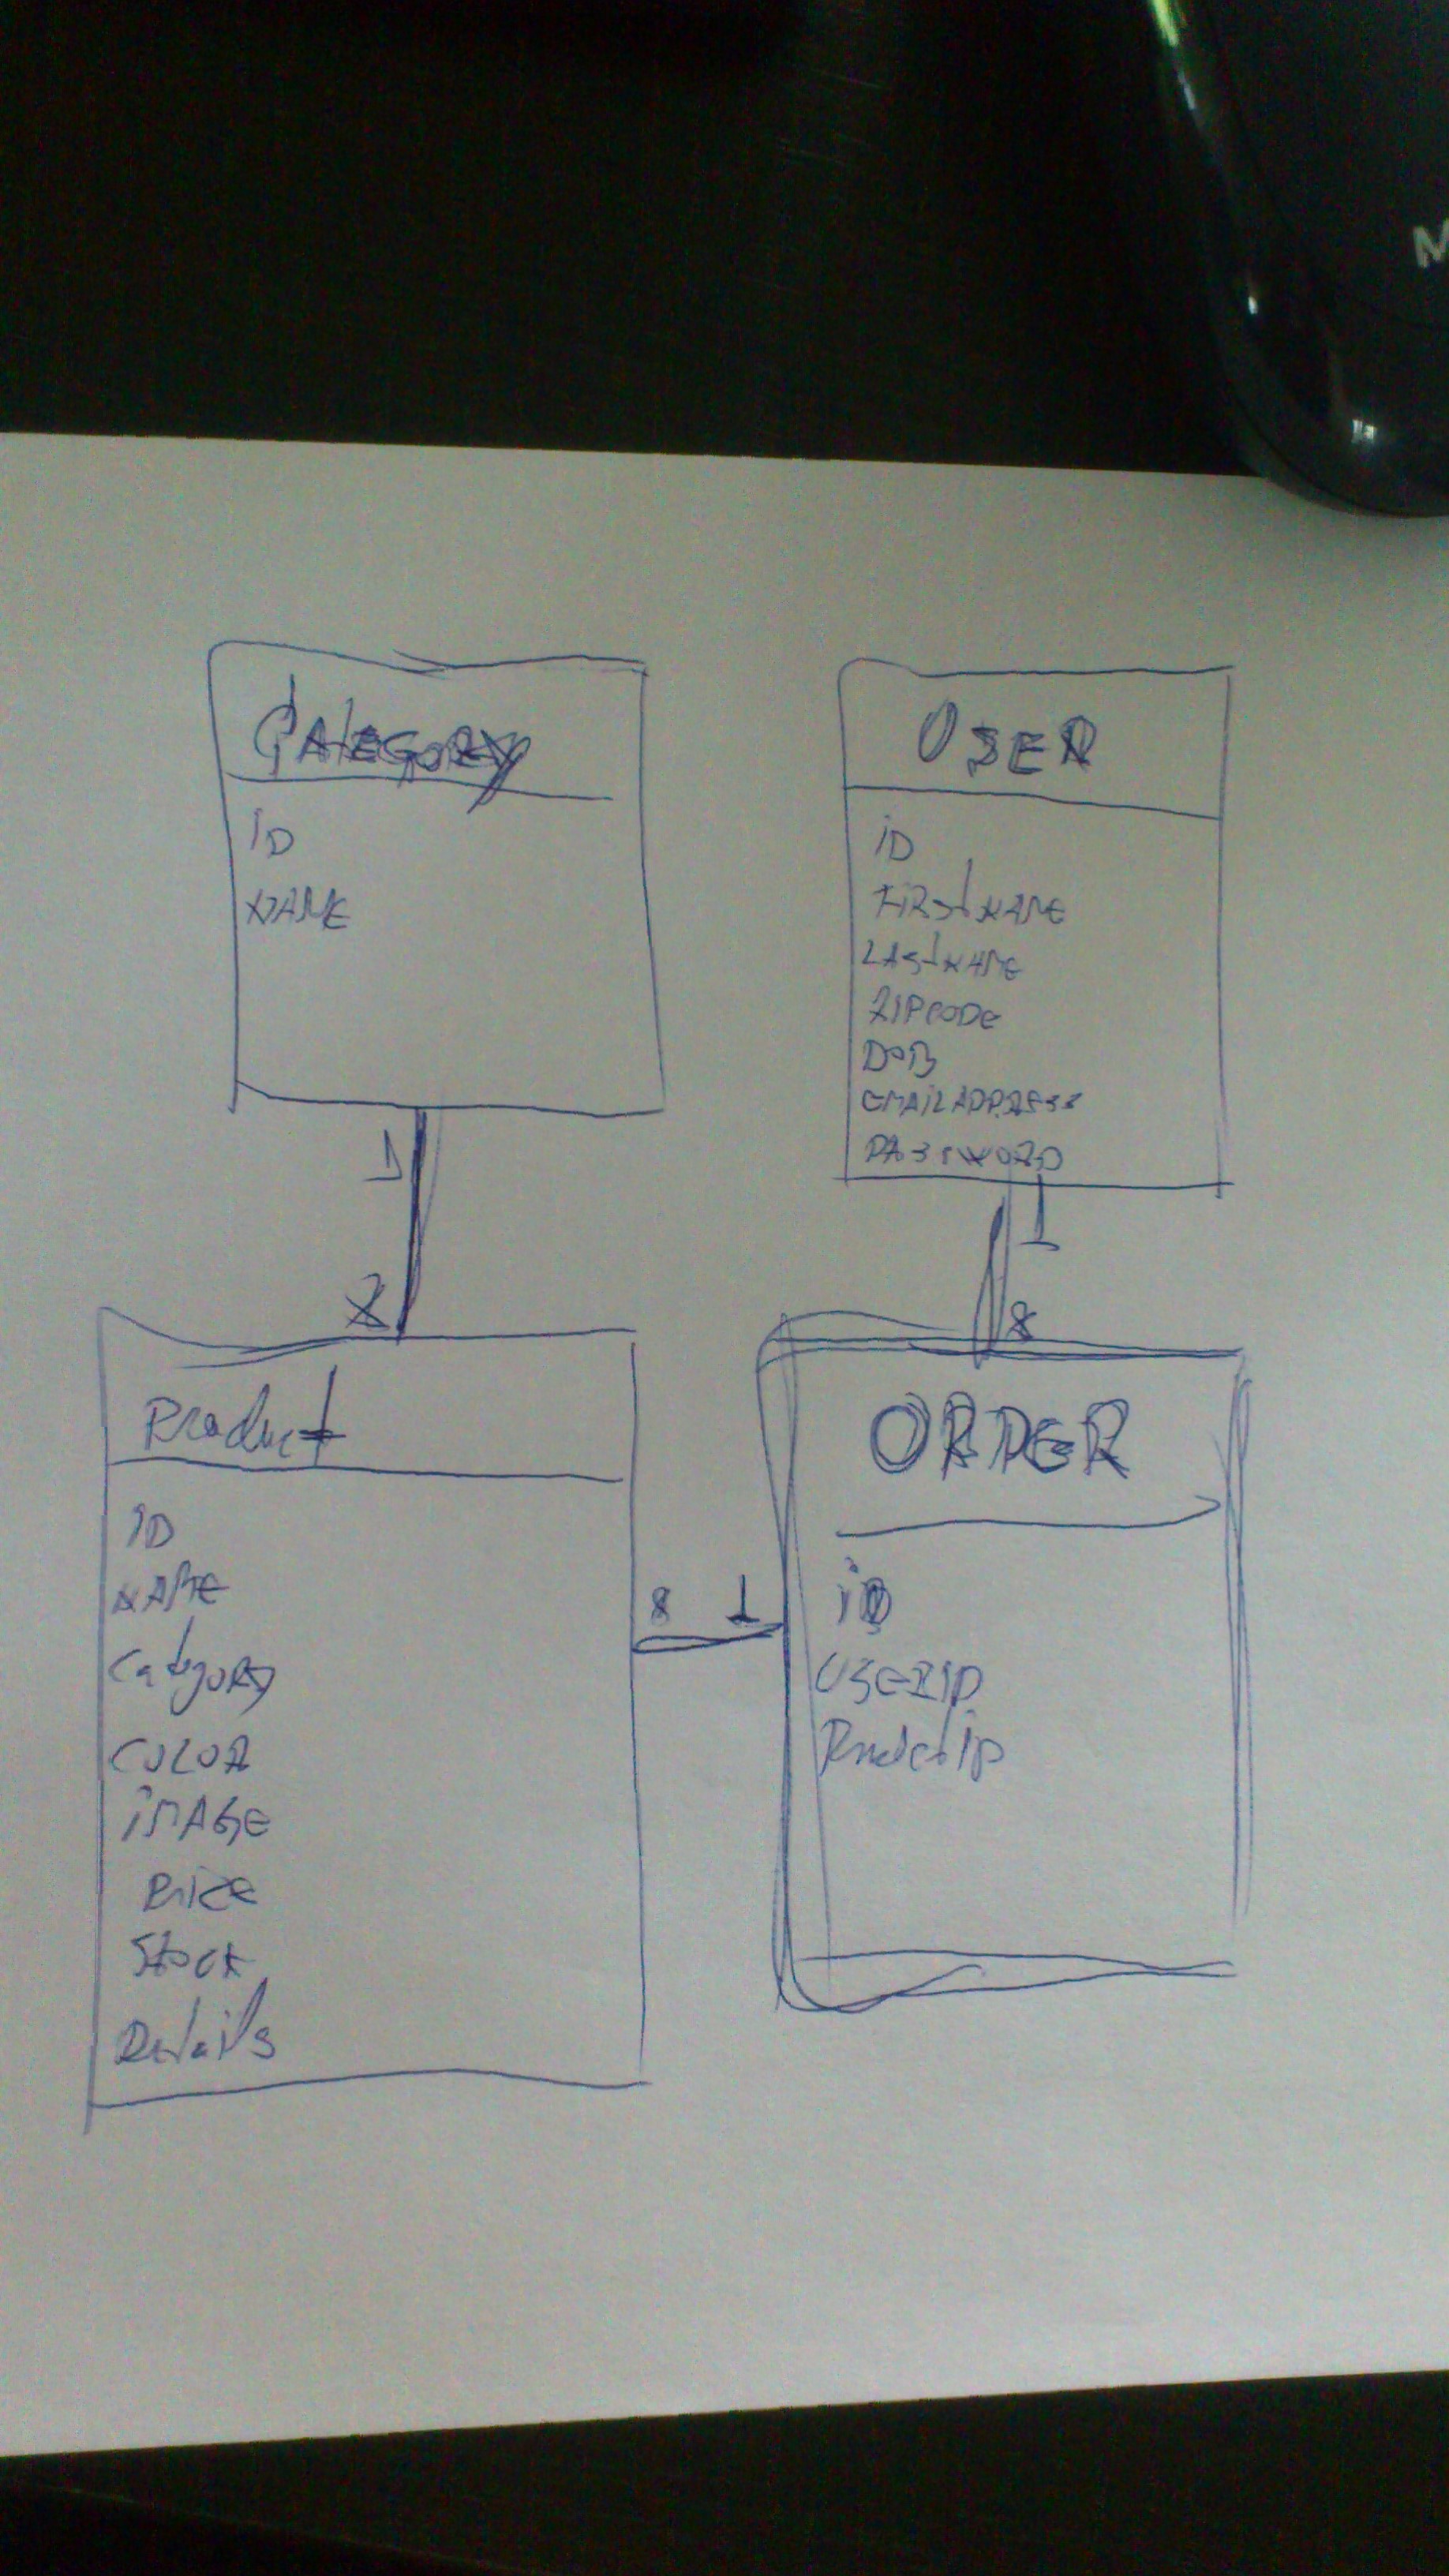 M
CAtEGORy
iD
NAME
1
USER
iD
FiRStNAME
LAStNAME
ZIPCODE
DOB
EMAiLADDRESS
PASSWORD
1
Product
iD
NAME
CategoRy
COLOR
iMAGE
PRice
Stock
Details
8 1
8
ORDER
iD
USERID
ProductiD